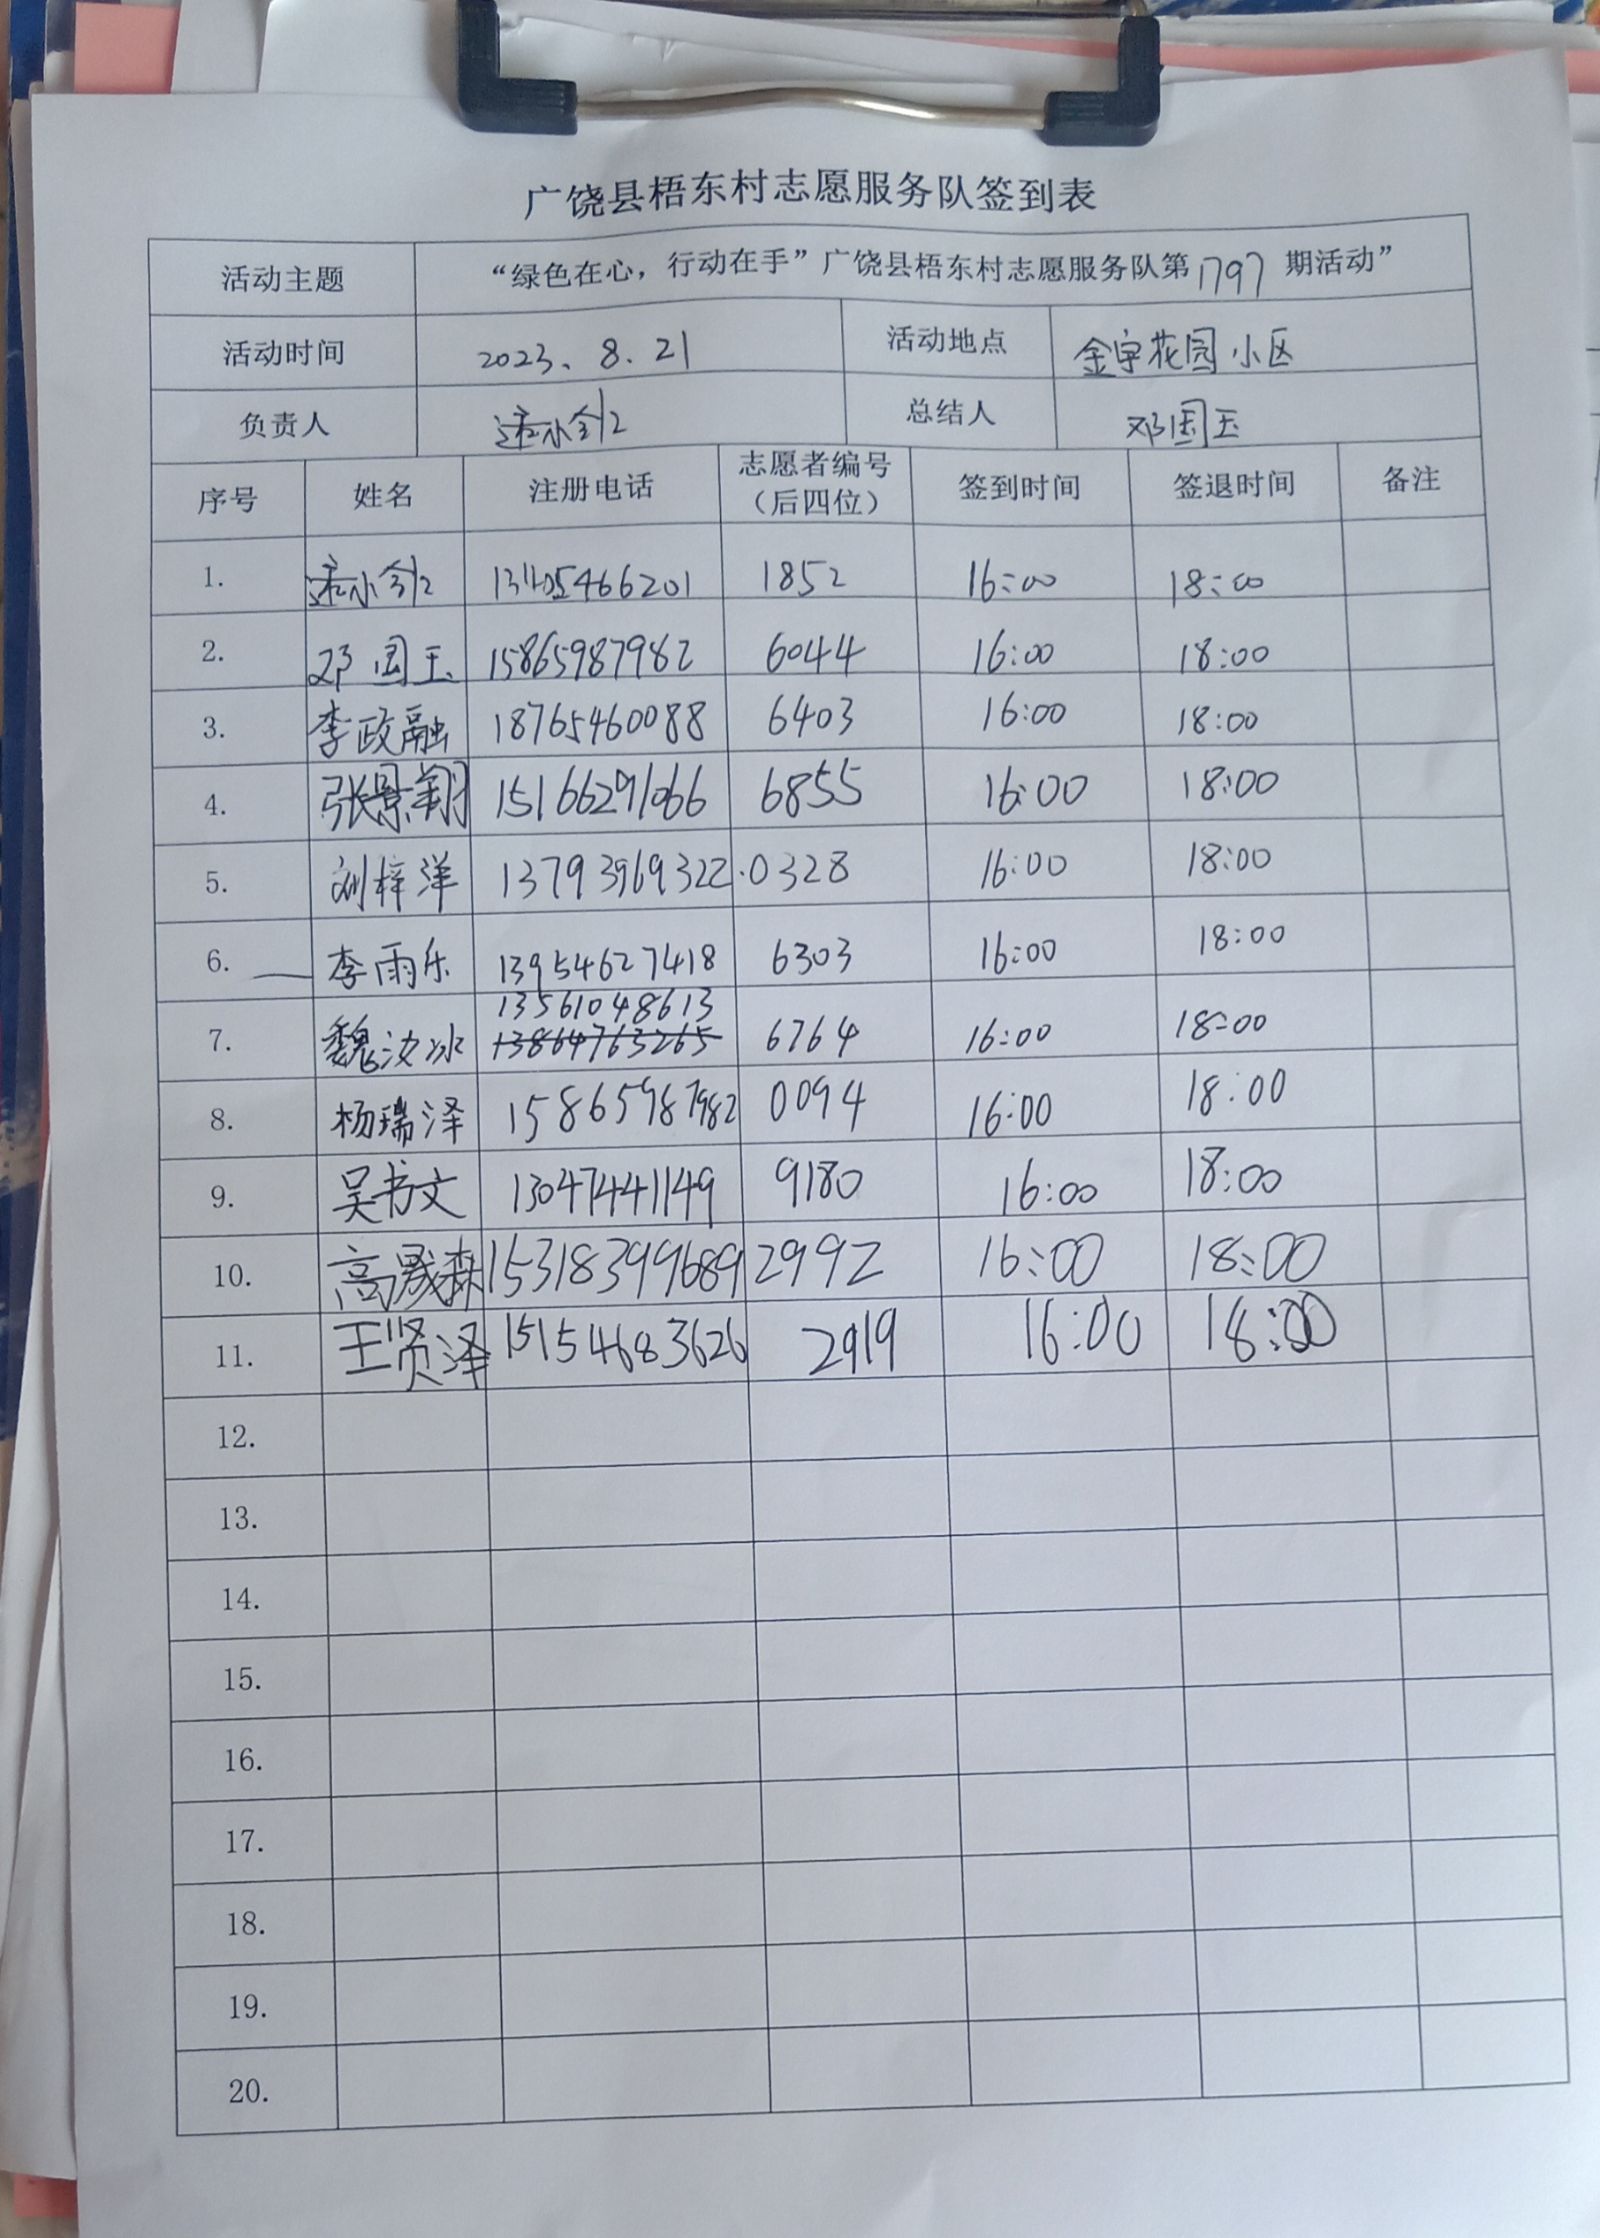 广饶县梧东村志愿服务队签到表
活动主题 “绿色在心，行动在手”广饶县梧东村志愿服务队第1797期活动”
活动时间 2023.8.21 活动地点 金宇花园小区
负责人 总结人 邓国玉
序号 姓名 注册电话 志愿者编号（后四位） 签到时间 签退时间 备注
1. 13405466201 1852 16:00 18:00
2. 邓国玉 15865987982 6044 16:00 18:00
3. 李政融 18765460088 6403 16:00 18:00
4. 张景翔 15166291066 6855 16:00 18:00
5. 刘梓洋 13793969322 0328 16:00 18:00
6. 李雨乐 13954627418 6303 16:00 18:00
7. 魏汝冰 13561048613 13864763265 6764 16:00 18:00
8. 杨瑞泽 15865987982 0094 16:00 18:00
9. 吴书文 13047441149 9180 16:00 18:00
10. 高晟森 15318399689 2992 16:00 18:00
11. 王贤泽 15154683626 2919 16:00 18:00
12.
13.
14.
15.
16.
17.
18.
19.
20.